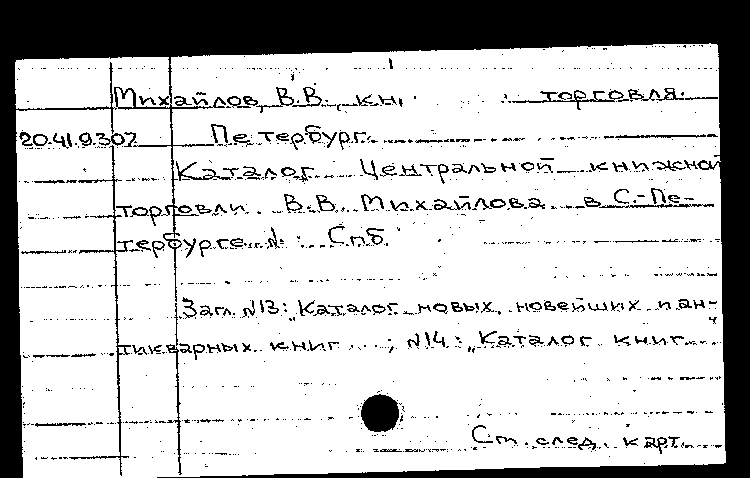 Михайлов, В.В., кн. торговля.
20.41.9.307 Петербург.
Каталог Центральной книжной
торговли В.В. Михайлова в С.-Пе-
тербурге. № : Спб.
Загл. №13: "Каталог новых, новейших и ан-
тикварных книг..."; №14: "Каталог книг...
См. след. карт.